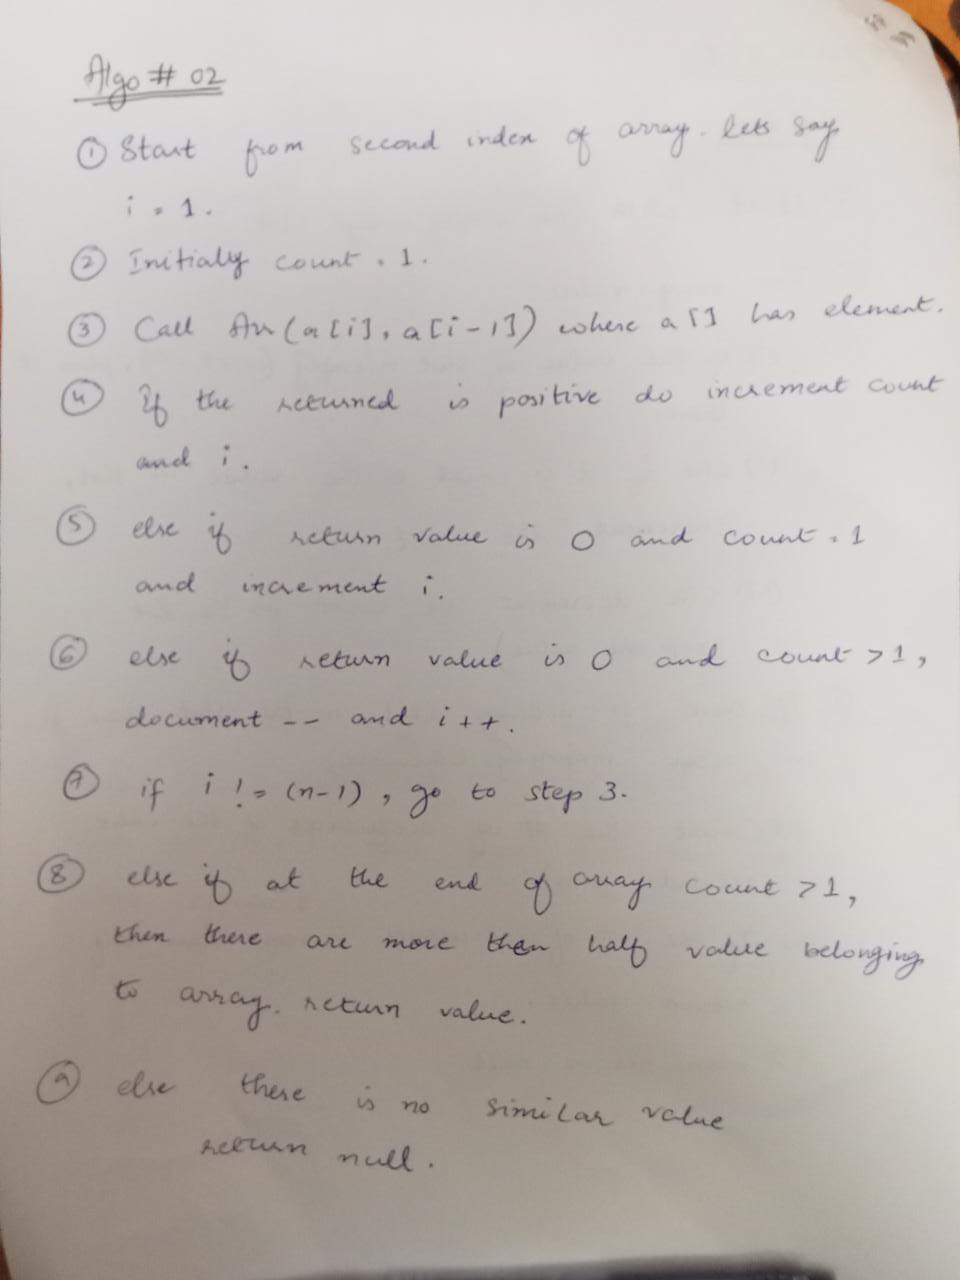 Algo # 02
① Start from second index of array. lets say
i = 1.
② Initialy count = 1.
③ Call Arr (a[i], a[i-1]) where a[] has element.
④ if the returned is positive do increment count
and i.
⑤ else if return value is 0 and count = 1
and increment i.
⑥ else if return value is 0 and count > 1,
document -- and i++.
⑦ if i != (n-1), go to step 3.
⑧ else if at the end of array count > 1,
then there are more then half value belonging
to array. return value.
⑨ else there is no similar value
return null.